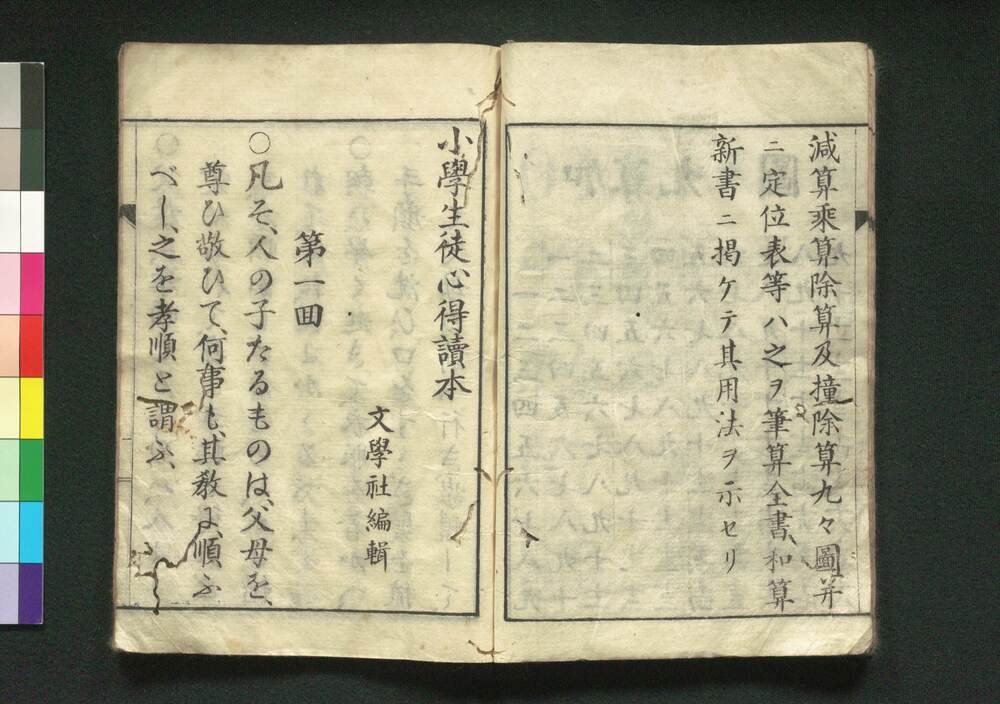 減算乘算除算及撞除算九々圖并
ニ定位表等ハ之ヲ筆算全書和算
新書ニ掲ケテ其用法ヲ示セリ
小學生徒心得讀本
文學社編輯
第一回
○凡そ、人の子たるものは、父母を、
尊ひ敬ひて、何事も、其教に、順ふ
べし、之を孝順と謂ふ、